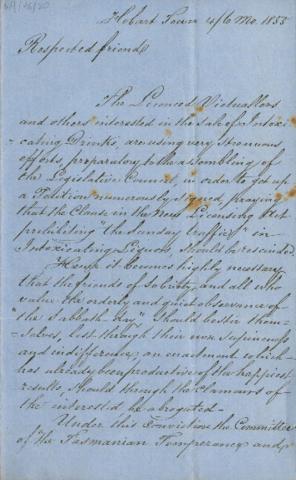 Hobart Town 4/6 Mo. 1855
Respected friend
The Licenced Victuallers
and others interested in the sale of Intoxi-
-cating Drinks, are using very strenuous
efforts, preparatory to the assembling of
the Legislative Council, in order to get up
a Petition numerously signed, praying
that the Clause in the New Licensing Act
prohibiting "the Sunday traffic" in
Intoxicating Liquors, should be rescinded.
Hence it becomes highly necessary
that the friends of Sobriety, and all who
value the orderly and quiet observance of
"the Sabbath day" should bestir them-
-selves, lest through their own supineness
and indifference, an enactment which
has already been productive of the happiest
results, should through the clamours of
the interested be abrogated -
Under this Conviction the Committee
of the Tasmanian Temperance and